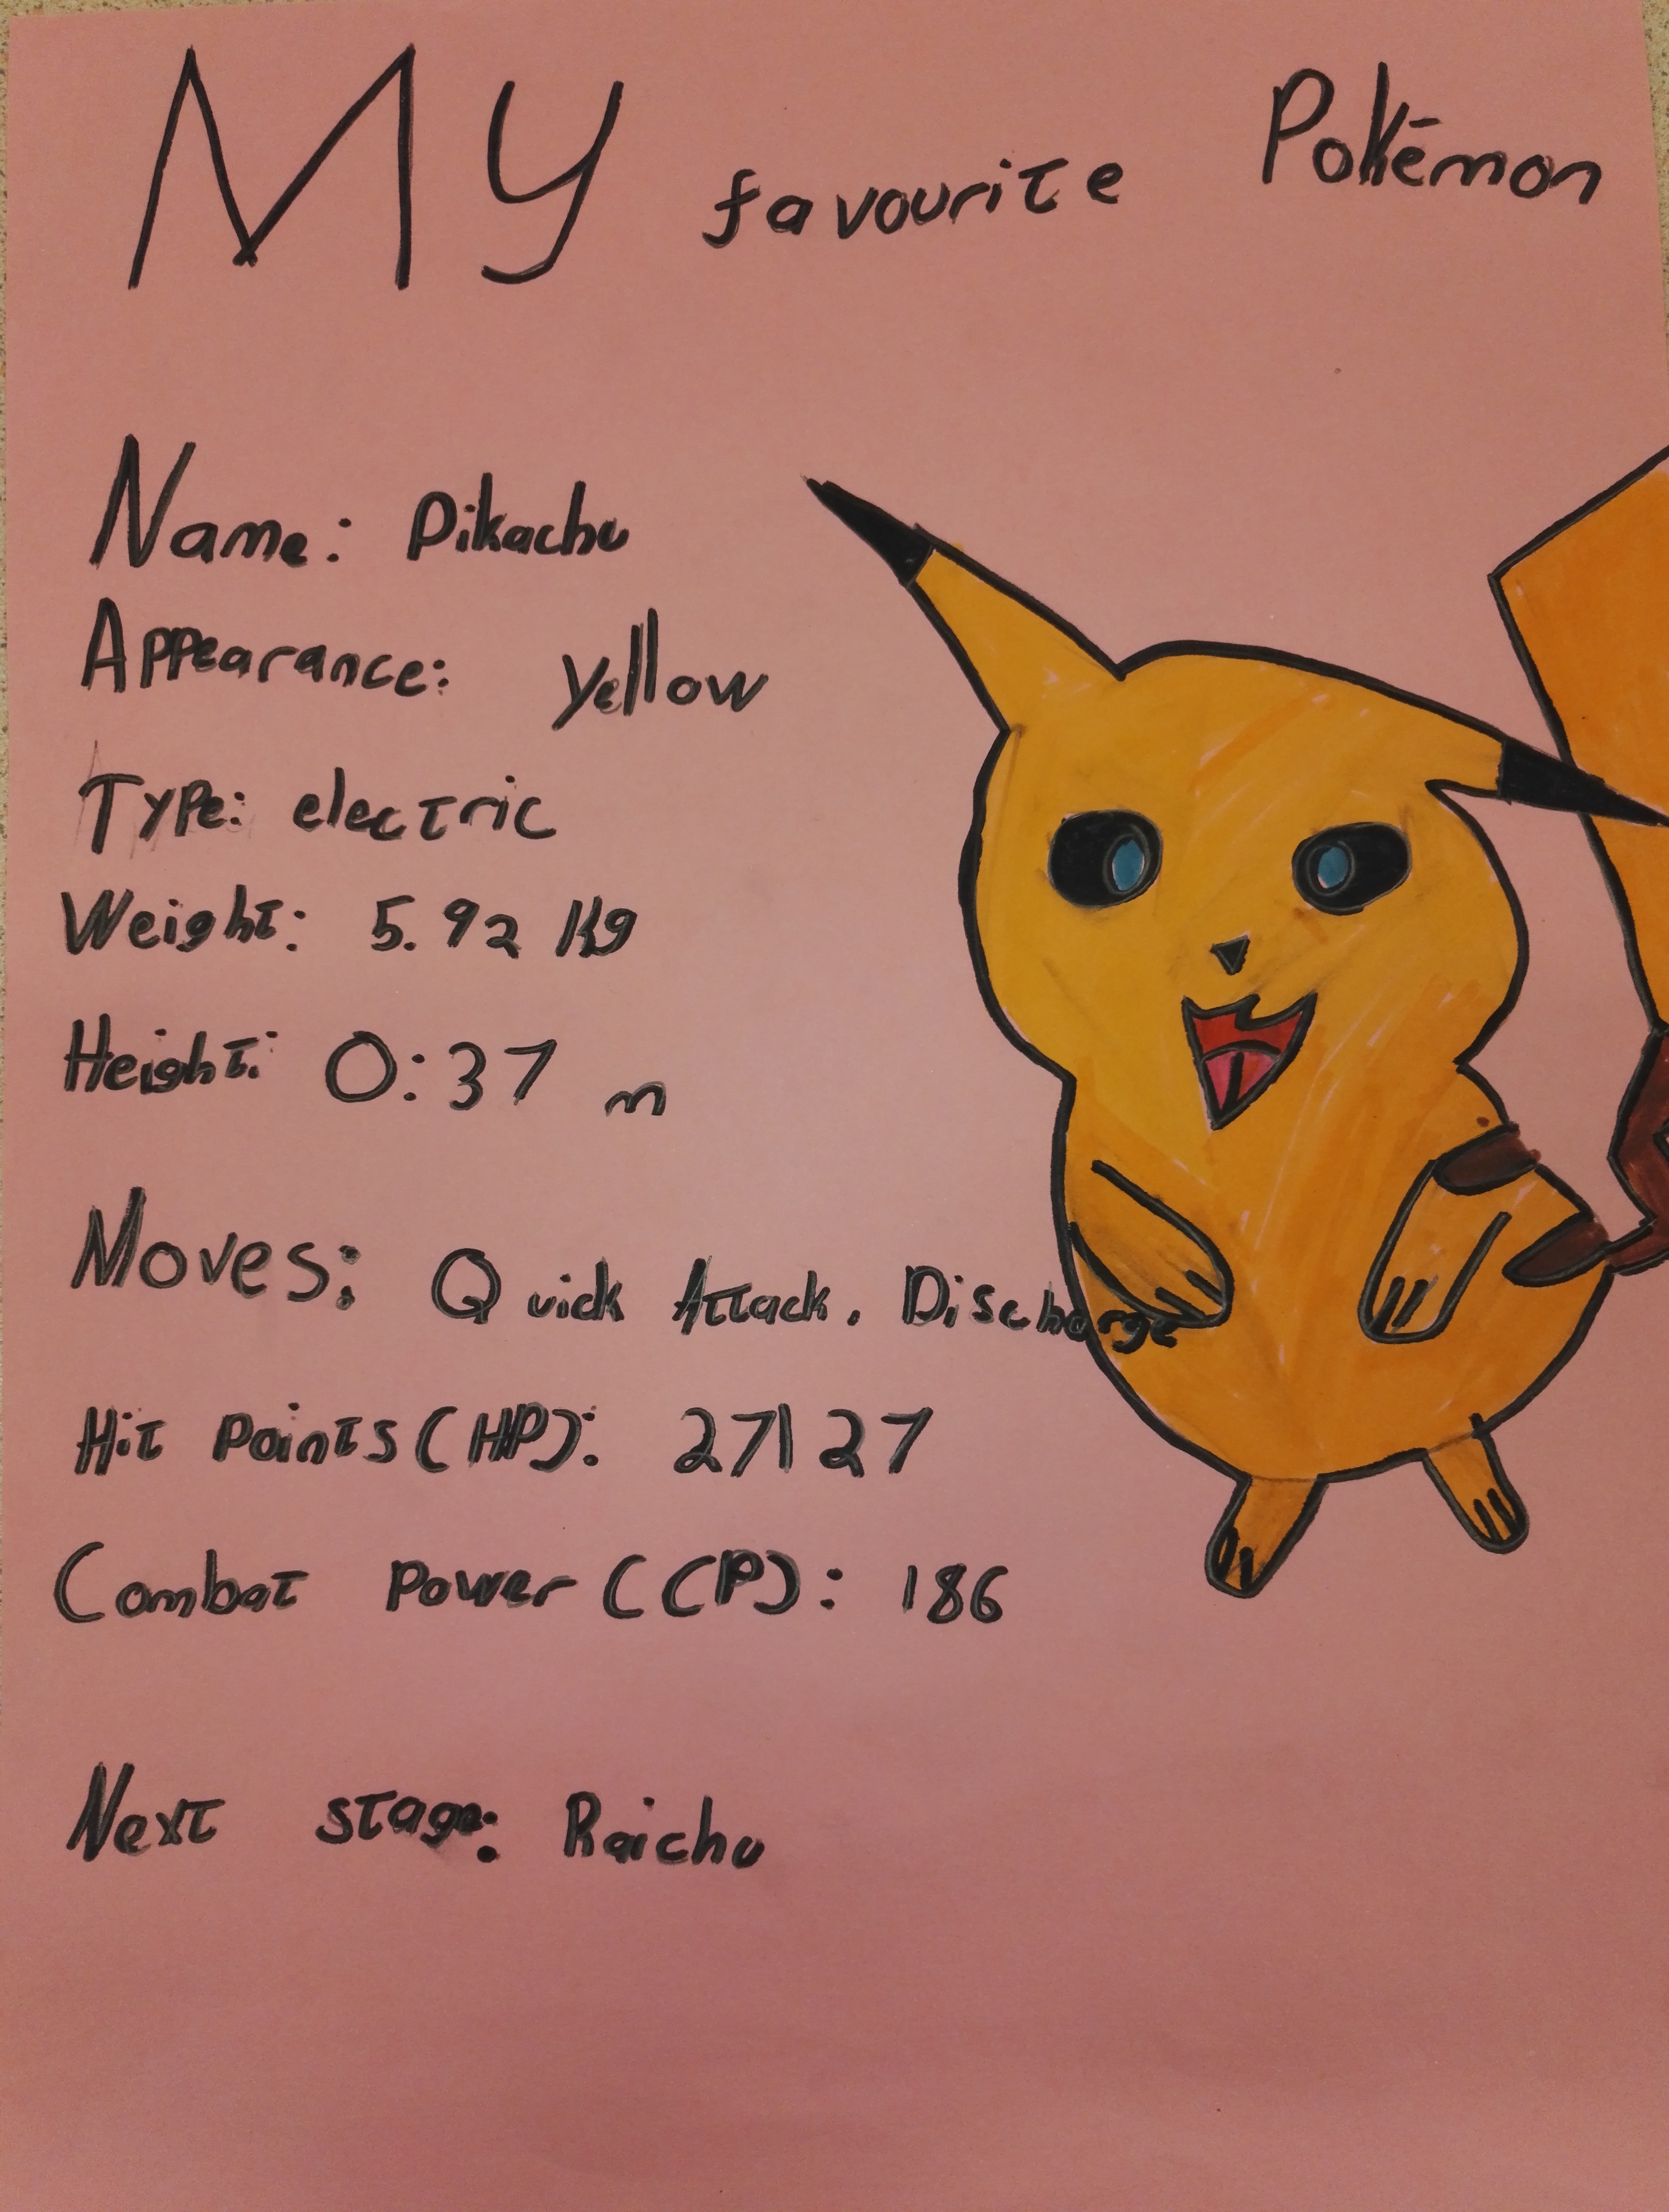 My favourite Pokémon
Name: Pikachu
Appearance: yellow
Type: electric
Weight: 5.92 Kg
Height: 0:37 m
Moves: Quick Attack, Discharge
Hit Points (HP): 27/27
Combat Power (CP): 186
Next stage: Raichu